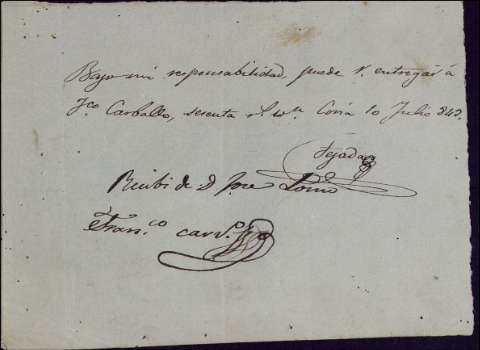 Bajo mi responsabilidad, puede V. entregar á
Fco Carballo, sesenta rs vn. Coria 10 Julio 842.
Tejada
Recibi de D Jose Lomo
Fran.co carv.o